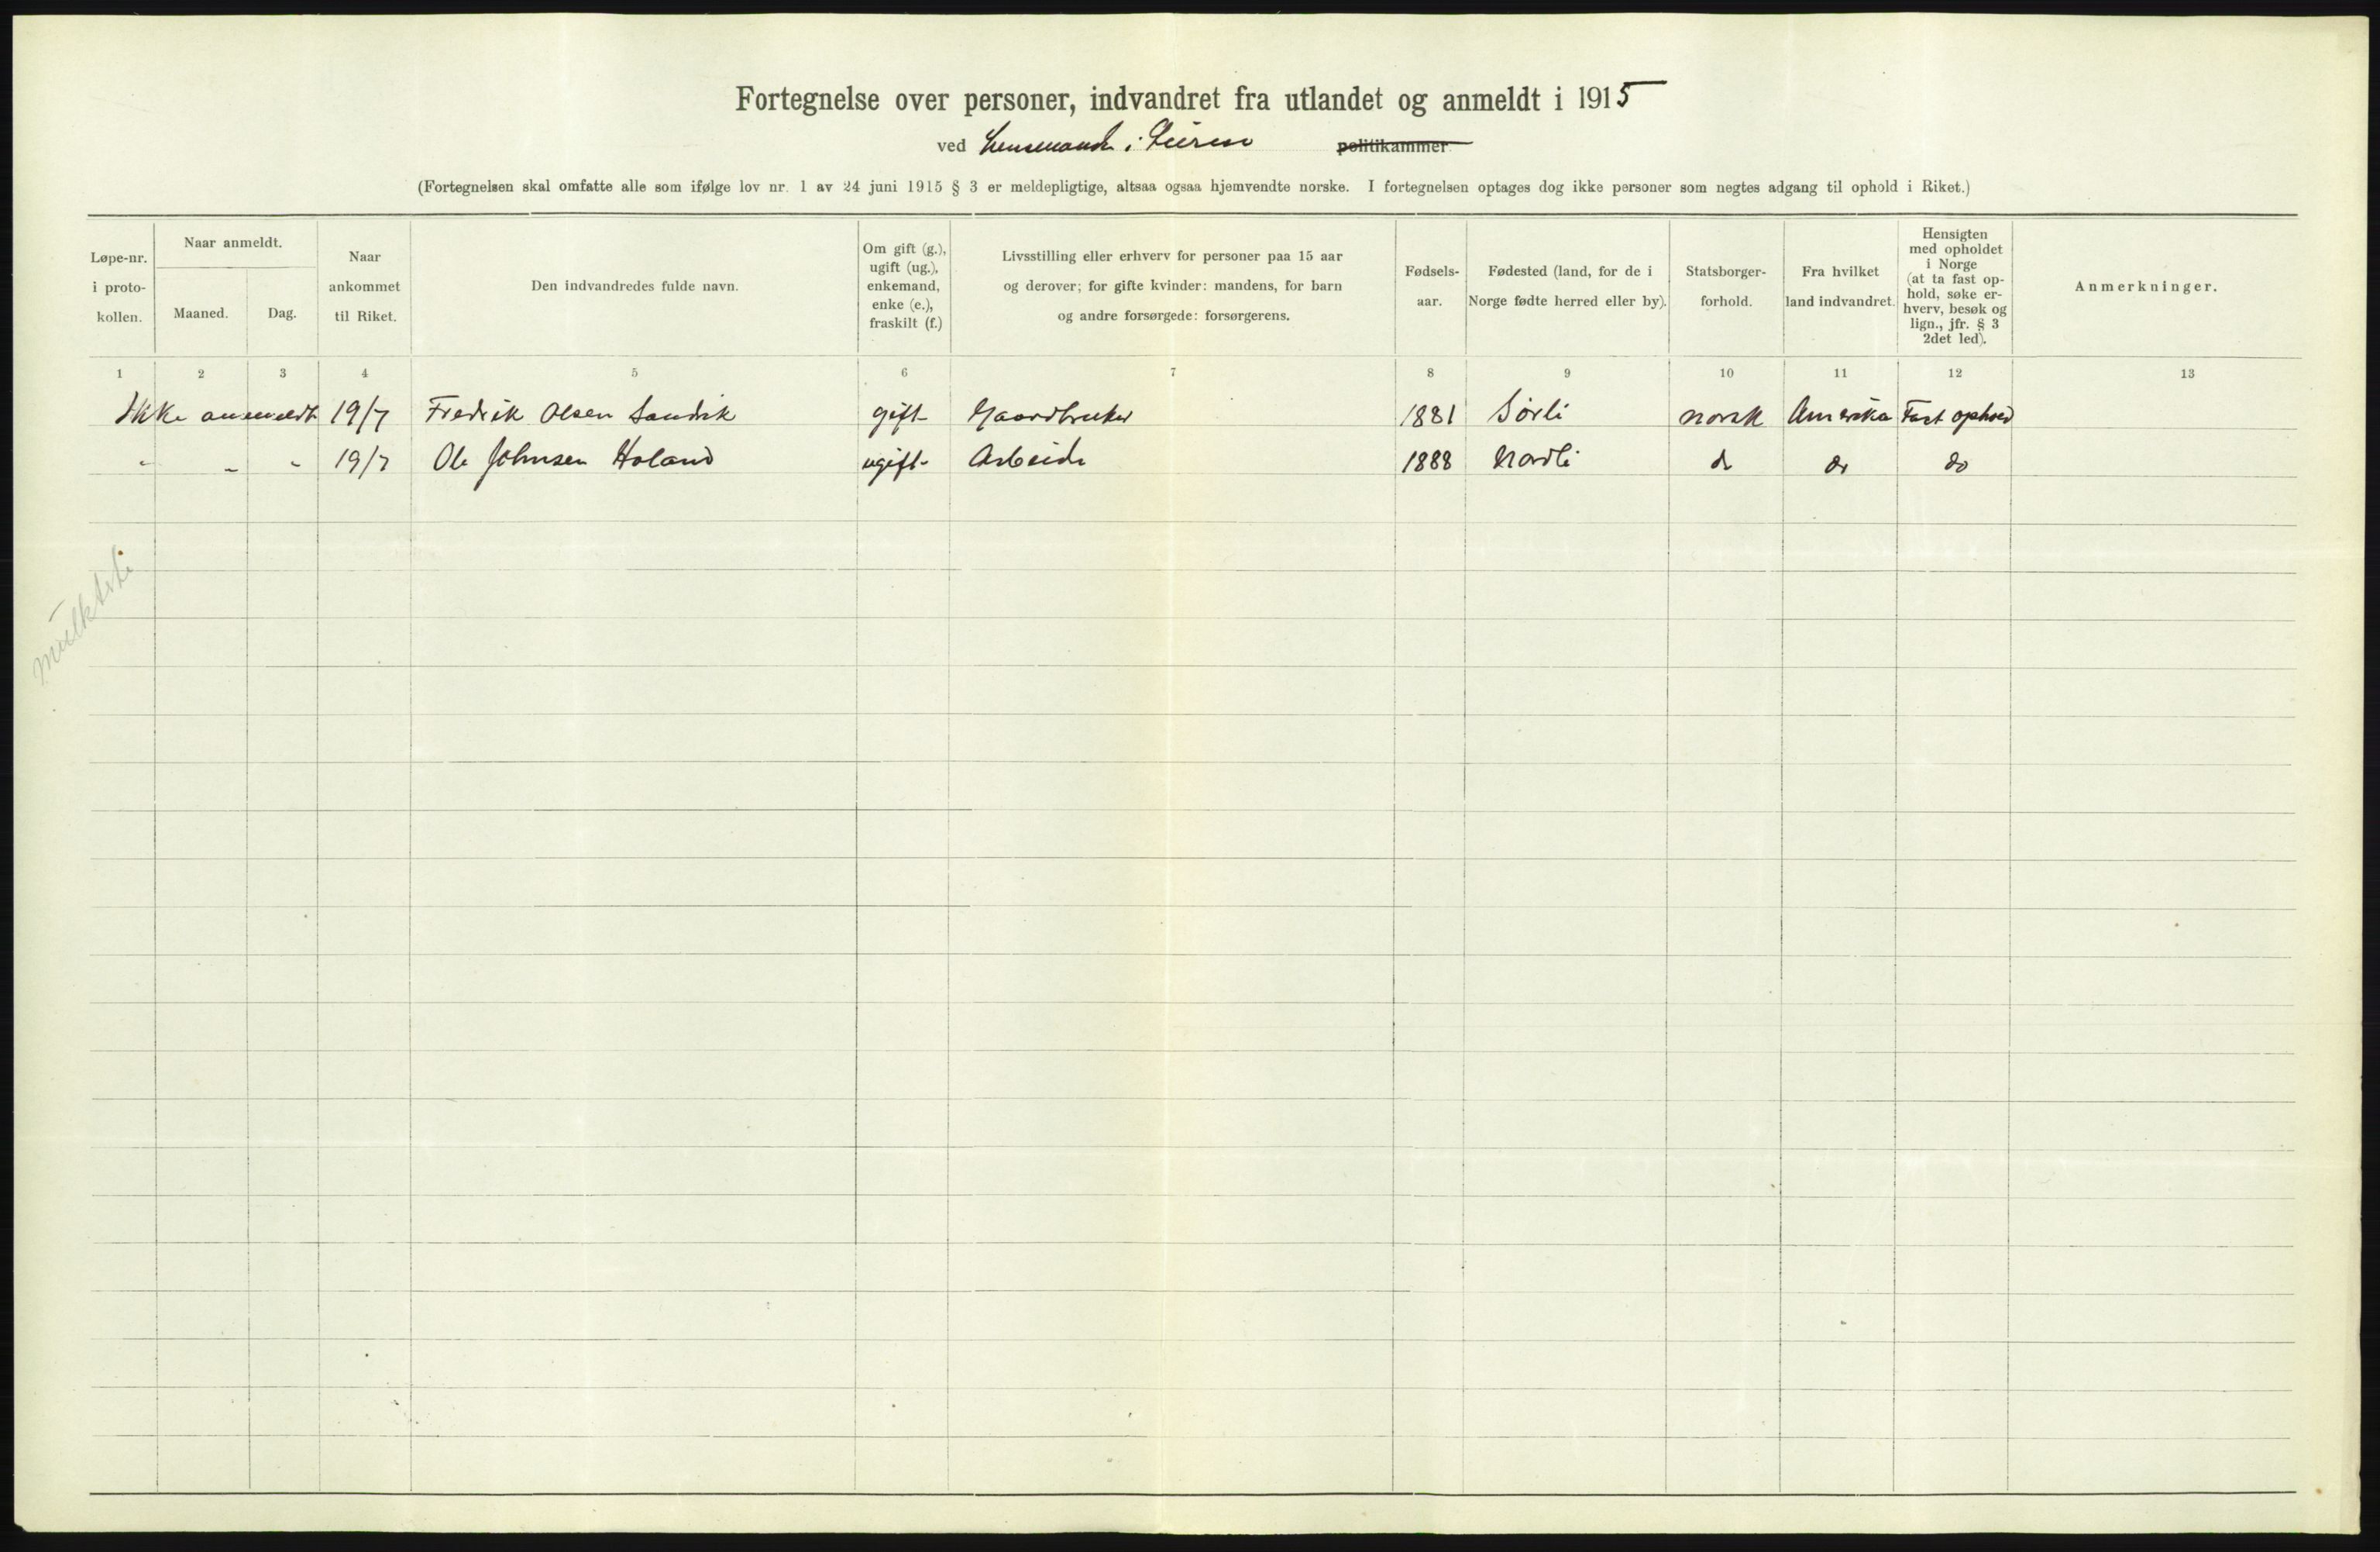 Fortegnelse over personer, indvandret fra utlandet og anmeldt i 1915
ved Lensmanden i Lierne politikammer
(Fortegnelsen skal omfatte alle som ifølge lov nr. 1 av 24 juni 1915 § 3 er meldepligtige, altsaa ogsaa hjemvendte norske. I fortegnelsen optages dog ikke personer som negtes adgang til ophold i Riket.)
Løpe-nr.
i proto-
kollen.
Naar anmeldt.
Maaned. Dag.
Naar
ankommet
til Riket.
Den indvandredes fulde navn.
Om gift (g.),
ugift (ug.),
enkemand,
enke (e.),
fraskilt (f.)
Livsstilling eller erhverv for personer paa 15 aar
og derover; for gifte kvinder: mandens, for barn
og andre forsørgede: forsørgerens.
Fødsels-
aar.
Fødested (land, for de i
Norge fødte herred eller by).
Statsborger-
forhold.
Fra hvilket
land indvandret.
Hensigten
med opholdet
i Norge
(at ta fast op-
hold, søke er-
hverv, besøk og
lign., jfr. § 3
2det led).
Anmerkninger.
1 2 3 4 5 6 7 8 9 10 11 12 13
Ikke anmeldt 19/7 Fredrik Olsen Sandvik gift Gaardbruker 1881 Sörli norsk Amerika Fast ophold
" " " 19/7 Ole Johnsen Holand ugift Arbeide 1888 Nordli do do do